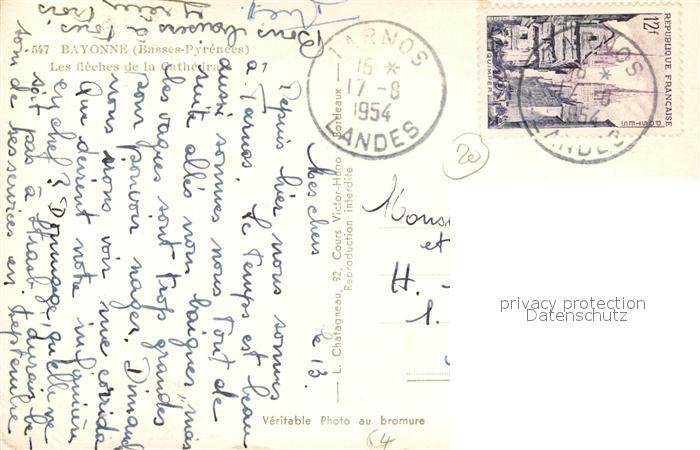 547 BAYONNE (Basses-Pyrénées)
Les flèches de la Cathédrale
TARNOS
16 *
17-8
1954
LANDES
12F
REPUBLIQUE FRANÇAISE
QUIMPER
POSTES
TARNOS
*
1954
LANDES
20
Le 13.
Mes chers
Depuis hier nous sommes
à Tarnos. Le temps est beau
aussi sommes nous tout de
suite allés nous baigner, mais
les vagues sont trop grandes
pour pouvoir nager. Dimanche
nous irons voir une corrida
Que devient notre infirmière
en chef? Dommage, qu'elle ne
soit pas à Strasbg, j'aurais be-
soin de ses services en septembre
Bons baisers
à tous
L. Chatagneau, 92, Cours Victor-Hugo - Bordeaux
Reproduction interdite
Mons
et
H.
1.
Véritable Photo au bromure
64
privacy protection
Datenschutz